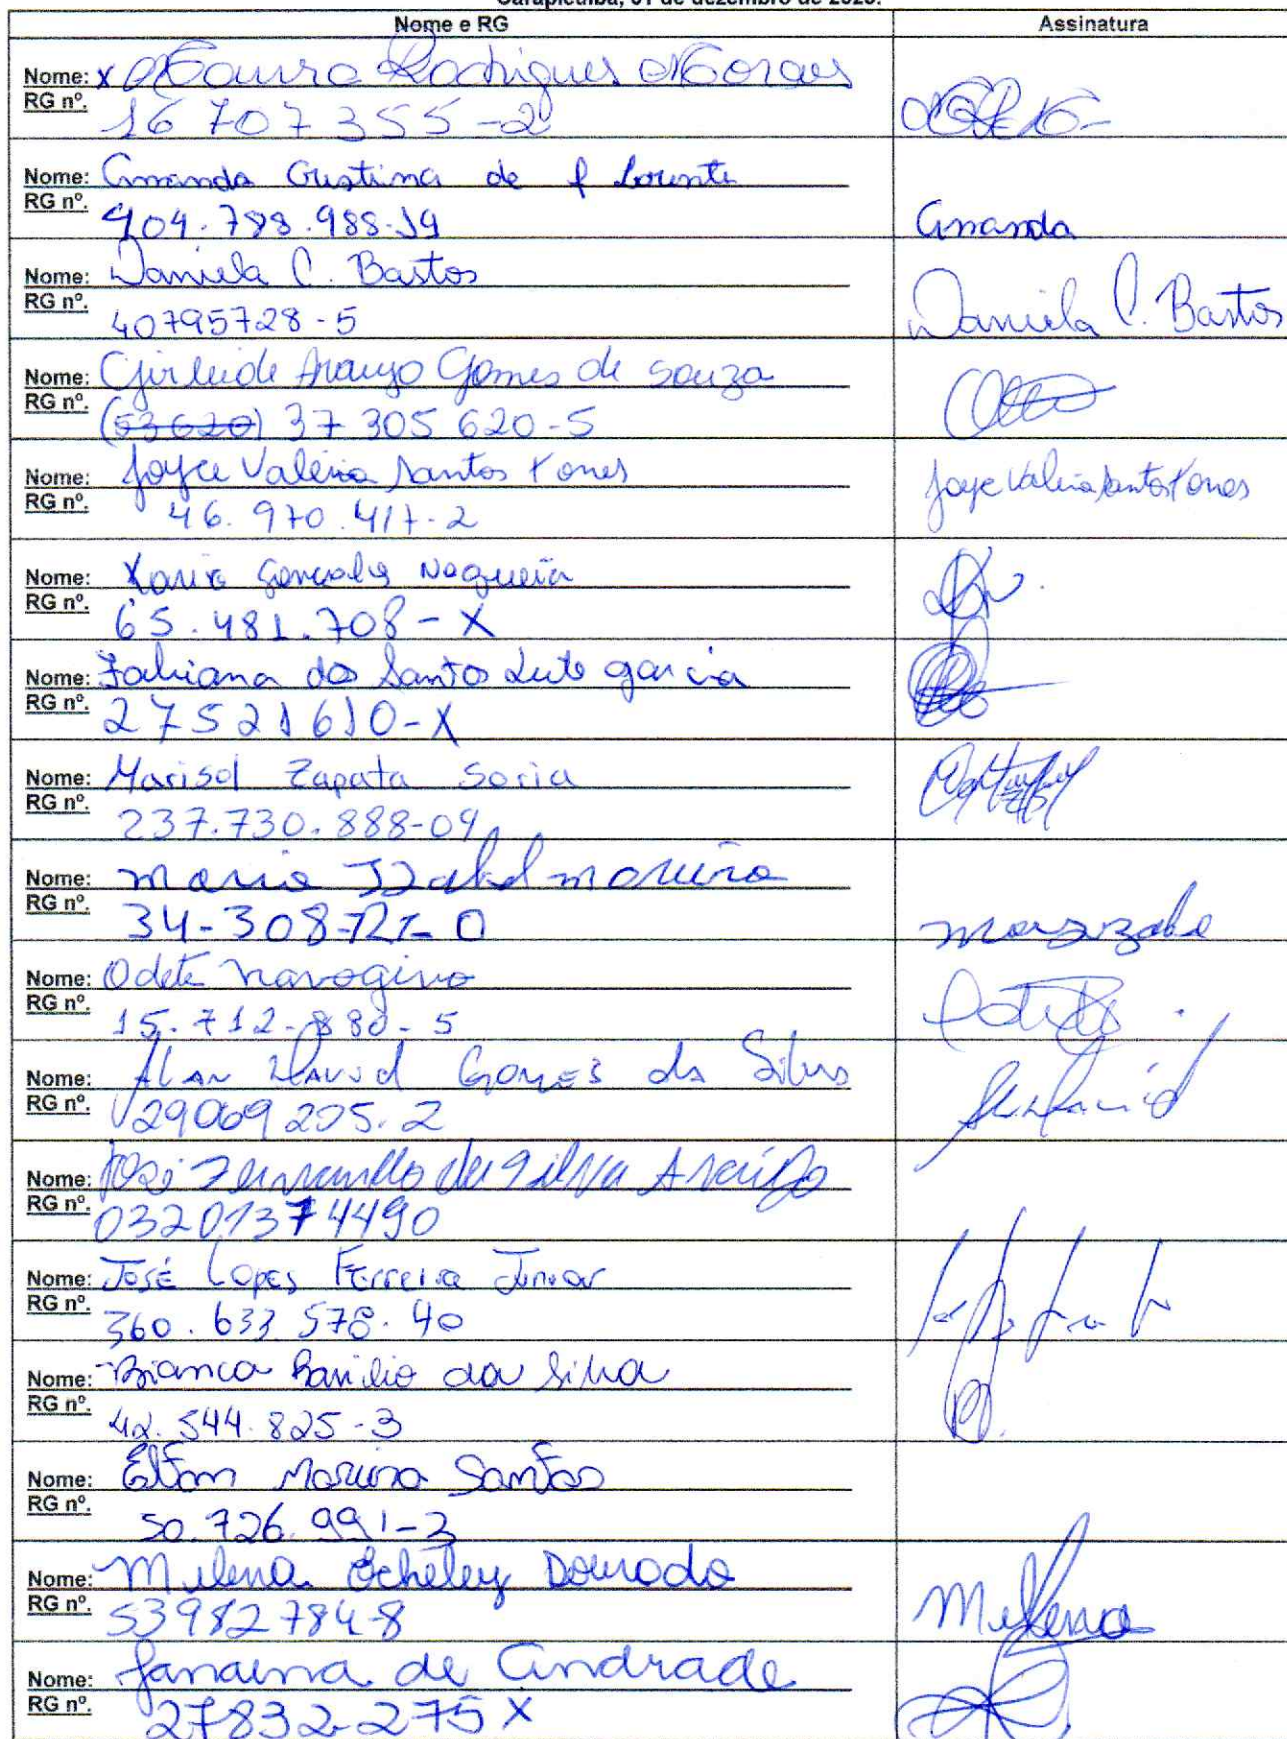 Carapicuíba, 01 de dezembro de 2023.
Nome e RG Assinatura
Nome: x Maura Rodrigues Moraes
RG nº. 16 707 355-2
Nome: Amanda Cristina de f Lorente
RG nº. 404.788.988-19 Amanda
Nome: Daniela C. Bastos
RG nº. 40795728-5 Daniela C. Bastos
Nome: Girleide Araujo Gomes de Souza
RG nº. (53620) 37 305 620-5
Nome: Joyce Valéria Santos Tones
RG nº. 46.970.417-2 Joyce Valéria Santos Tones
Nome: Gonçalves Nogueira
RG nº. 65.481.708-X
Nome: Fabiana dos Santos Leite garcia
RG nº. 27521610-X
Nome: Marisol Zapata Soria
RG nº. 237.730.888-09
Nome: Maria Izabel moreira
RG nº. 34-308-727-0
Nome: Odete
RG nº. 15.712-880-5
Nome: Alan David Gomes da Silva
RG nº. 29069205.2
Nome: José Fernando da Silva Araújo
RG nº. 03201374490
Nome: José Lopes Ferreira Junior
RG nº. 360.633 578.40
Nome: Bianca Basilio da Silva
RG nº. 42.544.825-3
Nome: Elton Moreira Santos
RG nº. 50.726.991-3
Nome: Milena Dourado
RG nº. 53982784-8 Milena
Nome: Janaina de Andrade
RG nº. 27832-275 X